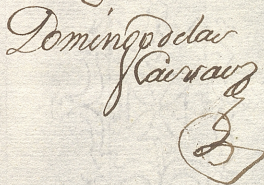 Domingo delas
Cassas